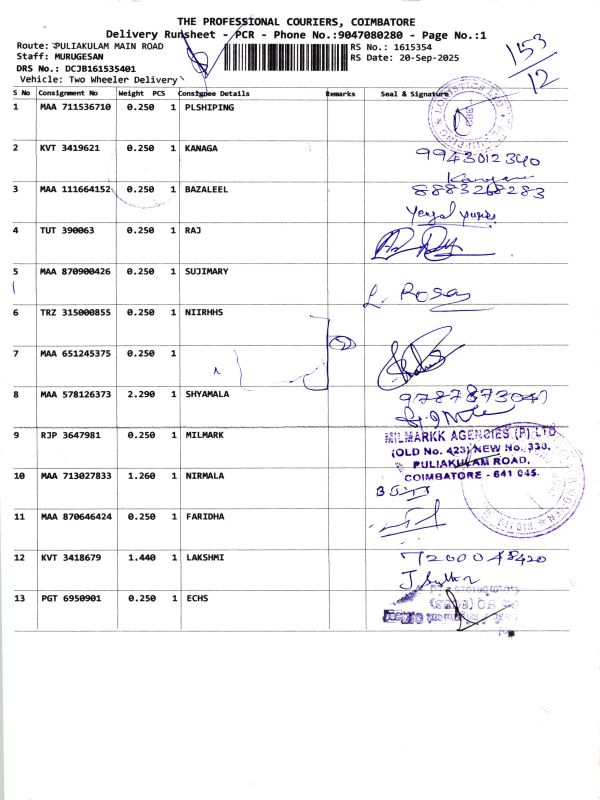 THE PROFESSIONAL COURIERS, COIMBATORE
Delivery Runsheet - PCR - Phone No.:9047080280 - Page No.:1
Route: PULIAKULAM MAIN ROAD RS No.: 1615354
Staff: MURUGESAN RS Date: 20-Sep-2025
DRS No.: DCJB161535401
Vehicle: Two Wheeler Delivery
153
12
S No Consignment No Weight PCS Consignee Details Remarks Seal & Signature
1 MAA 711536710 0.250 1 PLSHIPING
2 KVT 3419621 0.250 1 KANAGA 9943012340
3 MAA 111664152 0.250 1 BAZALEEL 8883268283
4 TUT 390063 0.250 1 RAJ
5 MAA 870900426 0.250 1 SUJIMARY L. Rosay
6 TRZ 315000855 0.250 1 NIIRHHS
7 MAA 651245375 0.250 1
8 MAA 578126373 2.290 1 SHYAMALA
9 RJP 3647981 0.250 1 MILMARK MILMARKK AGENCIES (P) LTD
(OLD No. 423) NEW No. 330,
PULIAKULAM ROAD,
COIMBATORE - 641 045.
10 MAA 713027833 1.260 1 NIRMALA
11 MAA 870646424 0.250 1 FARIDHA
12 KVT 3418679 1.440 1 LAKSHMI 7200048420
13 PGT 6950901 0.250 1 ECHS